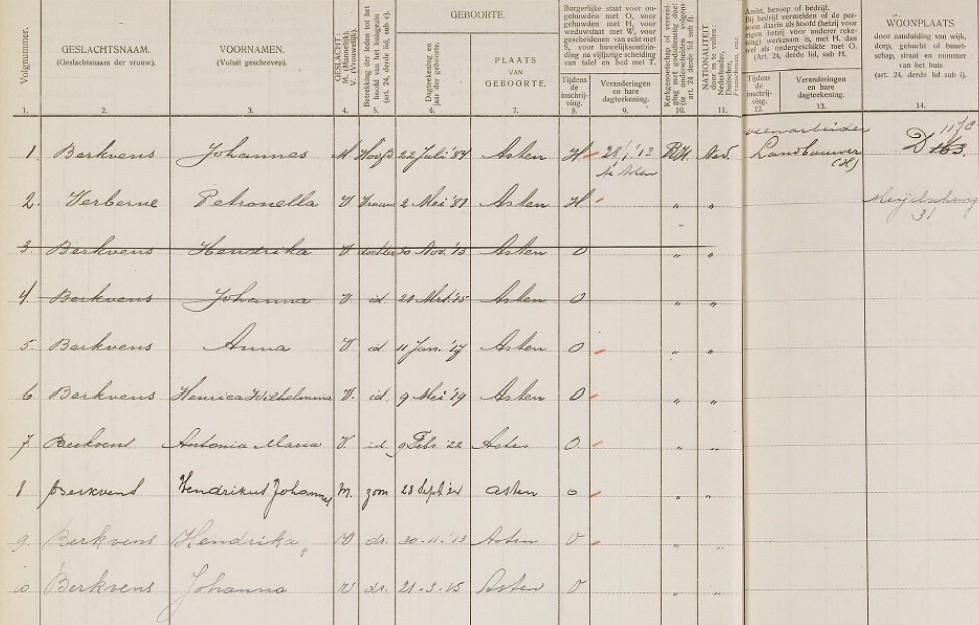 Volgnummer.
GESLACHTSNAAM.
(Geslachtsnaam der vrouw).
VOORNAMEN.
(Voluit geschreven).
GESLACHT:
M. (Mannelijk).
V. (Vrouwelijk).
Betrekking der leden tot het
hoofd van het huisgezin
(art. 24, derde lid, sub c).
GEBOORTE.
Dagteekening en
jaar der geboorte.
PLAATS
VAN
GEBOORTE.
Burgerlijke staat voor on-
gehuwden met O, voor
gehuwden met H, voor
weduwstaat met W, voor
gescheidenen van echt met
S, voor huwelijksontbin-
ding na vijfjarige scheiding
van tafel en bed met T.
Tijdens
de
inschrij-
ving.
Veranderingen
en hare
dagteekening.
Kerkgenootschap of vereeni-
ging met godsdienstig doel
(te onderscheiden volgens
art. 24 derde lid sub f).
NATIONALITEIT
door in te vullen:
Nederlander,
Duitscher,
Franschman, enz.
Ambt, beroep of bedrijf.
Bij bedrijf vermelden of de per-
soon daarin als hoofd (hetzij voor
eigen hetzij voor anderer reke-
ning) werkzaam is, met H. dan
wel als ondergeschikte met O.
(Art. 24, derde lid, sub H.
Tijdens
de
inschrij-
ving.
Veranderingen
en hare
dagteekening.
WOONPLAATS
door aanduiding van wijk,
dorp, gehucht of buurt-
schap, straat en nummer
van het huis
(art. 24, derde lid sub i).
1. 2. 3. 4. 5. 6. 7. 8. 9. 10. 11. 12. 13. 14.
veenarbeider
1. Berkvens Johannes M Hoofd 22 Juli '84 Asten H R.K. Ned. Landbouwer D 163.
(H)
2. Verberne Petronella V Vrouw 2 Mei '81 Asten H " "
31
3. Berkvens Hendrika V dochter 30 Nov. '13 Asten O " "
4. Berkvens Johanna V id 21 Mrt. '15 Asten O " "
5. Berkvens Anna V id 11 Jan. '17 Asten O " "
6. Berkvens Henrica Wilhelmina V. id 9 Mei '19 Asten O " "
7. Berkvens Antonia Maria V id 9 Febr '22 Asten O. " "
8 Berkvens Hendrikus Johannes M. zoon 28 Sept '24 Asten O " "
9. Berkvens Hendrika V dr. 30-11-'13 Asten O " "
10 Berkvens Johanna V dr. 21-3-'15 Asten O " "